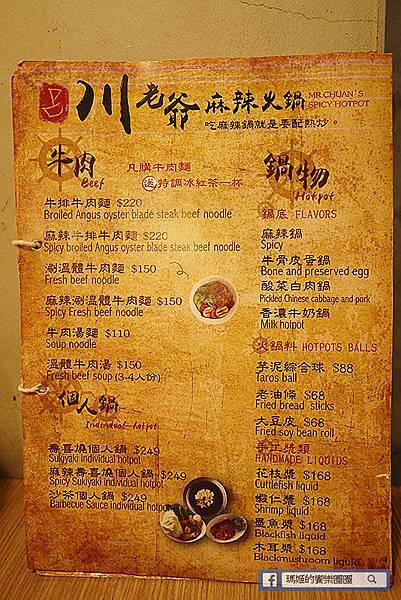 川老爺麻辣火鍋 MR.CHUAN'S SPICY HOTPOT
吃麻辣鍋就是要配熱炒。
牛肉
Beef
凡購牛肉麵
送特調冰紅茶一杯
牛排牛肉麵 $220
Broiled Angus oyster blade steak beef noodle
麻辣牛排牛肉麵 $220
Spicy broiled Angus oyster blade steak beef noodle
涮溫體牛肉麵 $150
Fresh beef noodle
麻辣涮溫體牛肉麵 $150
Spicy Fresh beef noodle
牛肉湯麵 $110
Soup noodle
溫體牛肉湯 $150
Fresh beef soup (3-4人份)
個人鍋
Individual hotpot
壽喜燒個人鍋 $249
Sukiyaki individual hotpot
麻辣壽喜燒個人鍋 $249
Spicy Sukiyaki individual hotpot
沙茶個人鍋 $249
Barbecue Sauce individual hotpot
鍋物
Hotpot
鍋底 FLAVORS
麻辣鍋
Spicy
牛骨皮蛋鍋
Bone and preserved egg
酸菜白肉鍋
Pickled Chinese cabbage and pork
香濃牛奶鍋
Milk hotpot
火鍋料 HOTPOTS BALLS
芋泥綜合球 $88
Taros ball
老油條 $68
Fried bread sticks
大豆皮 $68
Fried soy bean roll
手工漿類
HANDMADE LIQUIDS
花枝漿 $168
Cuttlefish liquid
蝦仁漿 $168
Shrimp liquid
墨魚漿 $168
Blackfish liquid
木耳漿 $168
Blackmushroom liquid
瑪姬的饗樂圈圈